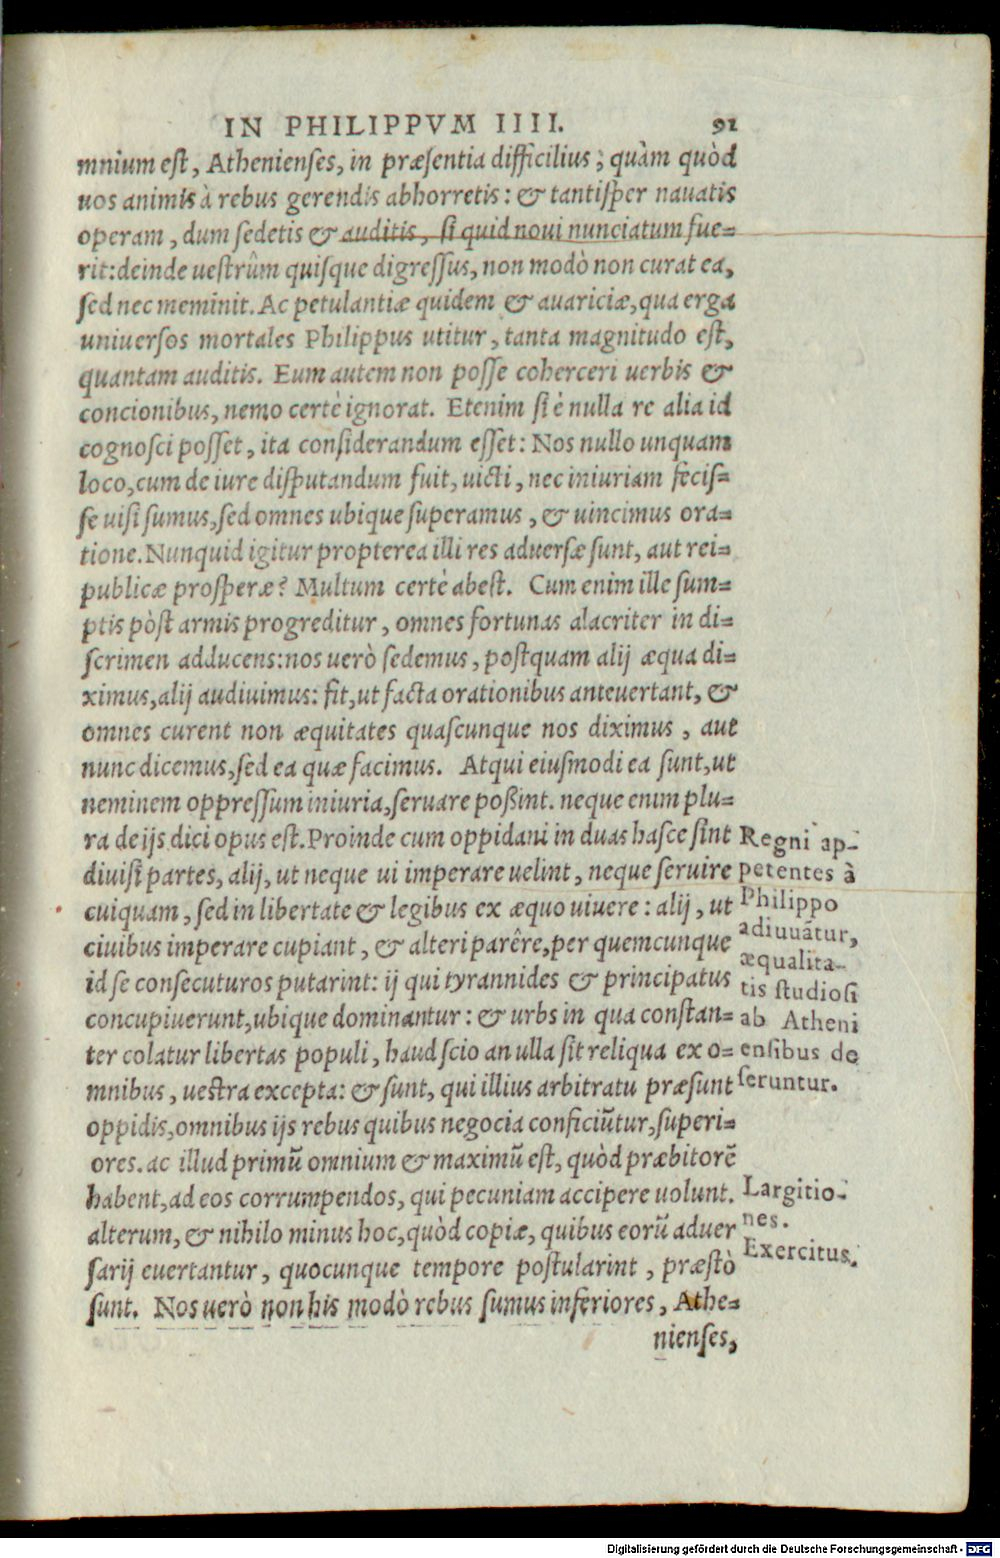 IN PHILIPPVM IIII. 91
mnium est, Athenienses, in præsentia difficilius; quàm quòd
uos animis à rebus gerendis abhorretis: & tantisper nauatis
operam, dum sedetis & auditis, si quid noui nunciatum fue=
rit: deinde uestrûm quisque digressus, non modò non curat ea,
sed nec meminit. Ac petulantiæ quidem & auariciæ, qua erga
uniuersos mortales Philippus utitur, tanta magnitudo est,
quantam auditis. Eum autem non posse coherceri uerbis &
concionibus, nemo certè ignorat. Etenim si è nulla re alia id
cognosci posset, ita considerandum esset: Nos nullo unquam
loco, cum de iure disputandum fuit, uicti, nec iniuriam fecis=
se uisi sumus, sed omnes ubique superamus, & uincimus ora=
tione. Nunquid igitur propterea illi res aduersæ sunt, aut rei=
publicæ prosperæ? Multum certè abest. Cum enim ille sum=
ptis pòst armis progreditur, omnes fortunas alacriter in di=
scrimen adducens: nos uerò sedemus, postquam alij æqua di=
ximus, alij audiuimus: fit, ut facta orationibus anteuertant, &
omnes curent non æquitates quascunque nos diximus, aut
nunc dicemus, sed ea quæ facimus. Atqui eiusmodi ea sunt, ut
neminem oppressum iniuria, seruare poßint. neque enim plu=
ra de ijs dici opus est. Proinde cum oppidani in duas hasce sint
diuisi partes, alij, ut neque ui imperare uelint, neque seruire
cuiquam, sed in libertate & legibus ex æquo uiuere: alij, ut
ciuibus imperare cupiant, & alteri parêre, per quemcunque
id se consecuturos putarint: ij qui tyrannides & principatus
concupiuerunt, ubique dominantur: & urbs in qua constan=
ter colatur libertas populi, haud scio an ulla sit reliqua ex o=
mnibus, uestra excepta: & sunt, qui illius arbitratu præsunt
oppidis, omnibus ijs rebus quibus negocia conficiūtur, superi=
ores. ac illud primū omnium & maximū est, quòd præbitorē
habent, ad eos corrumpendos, qui pecuniam accipere uolunt.
alterum, & nihilo minus hoc, quòd copiæ, quibus eorū aduer
sarij euertantur, quocunque tempore postularint, præstò
sunt. Nos uerò non his modò rebus sumus inferiores, Athe=
nienses,
Regni ap-
petentes à
Philippo
adiuuātur,
æqualita-
tis studiosi
ab Atheni
ensibus de
seruntur.
Largitio-
nes.
Exercitus.
Digitalisierung gefördert durch die Deutsche Forschungsgemeinschaft - DFG